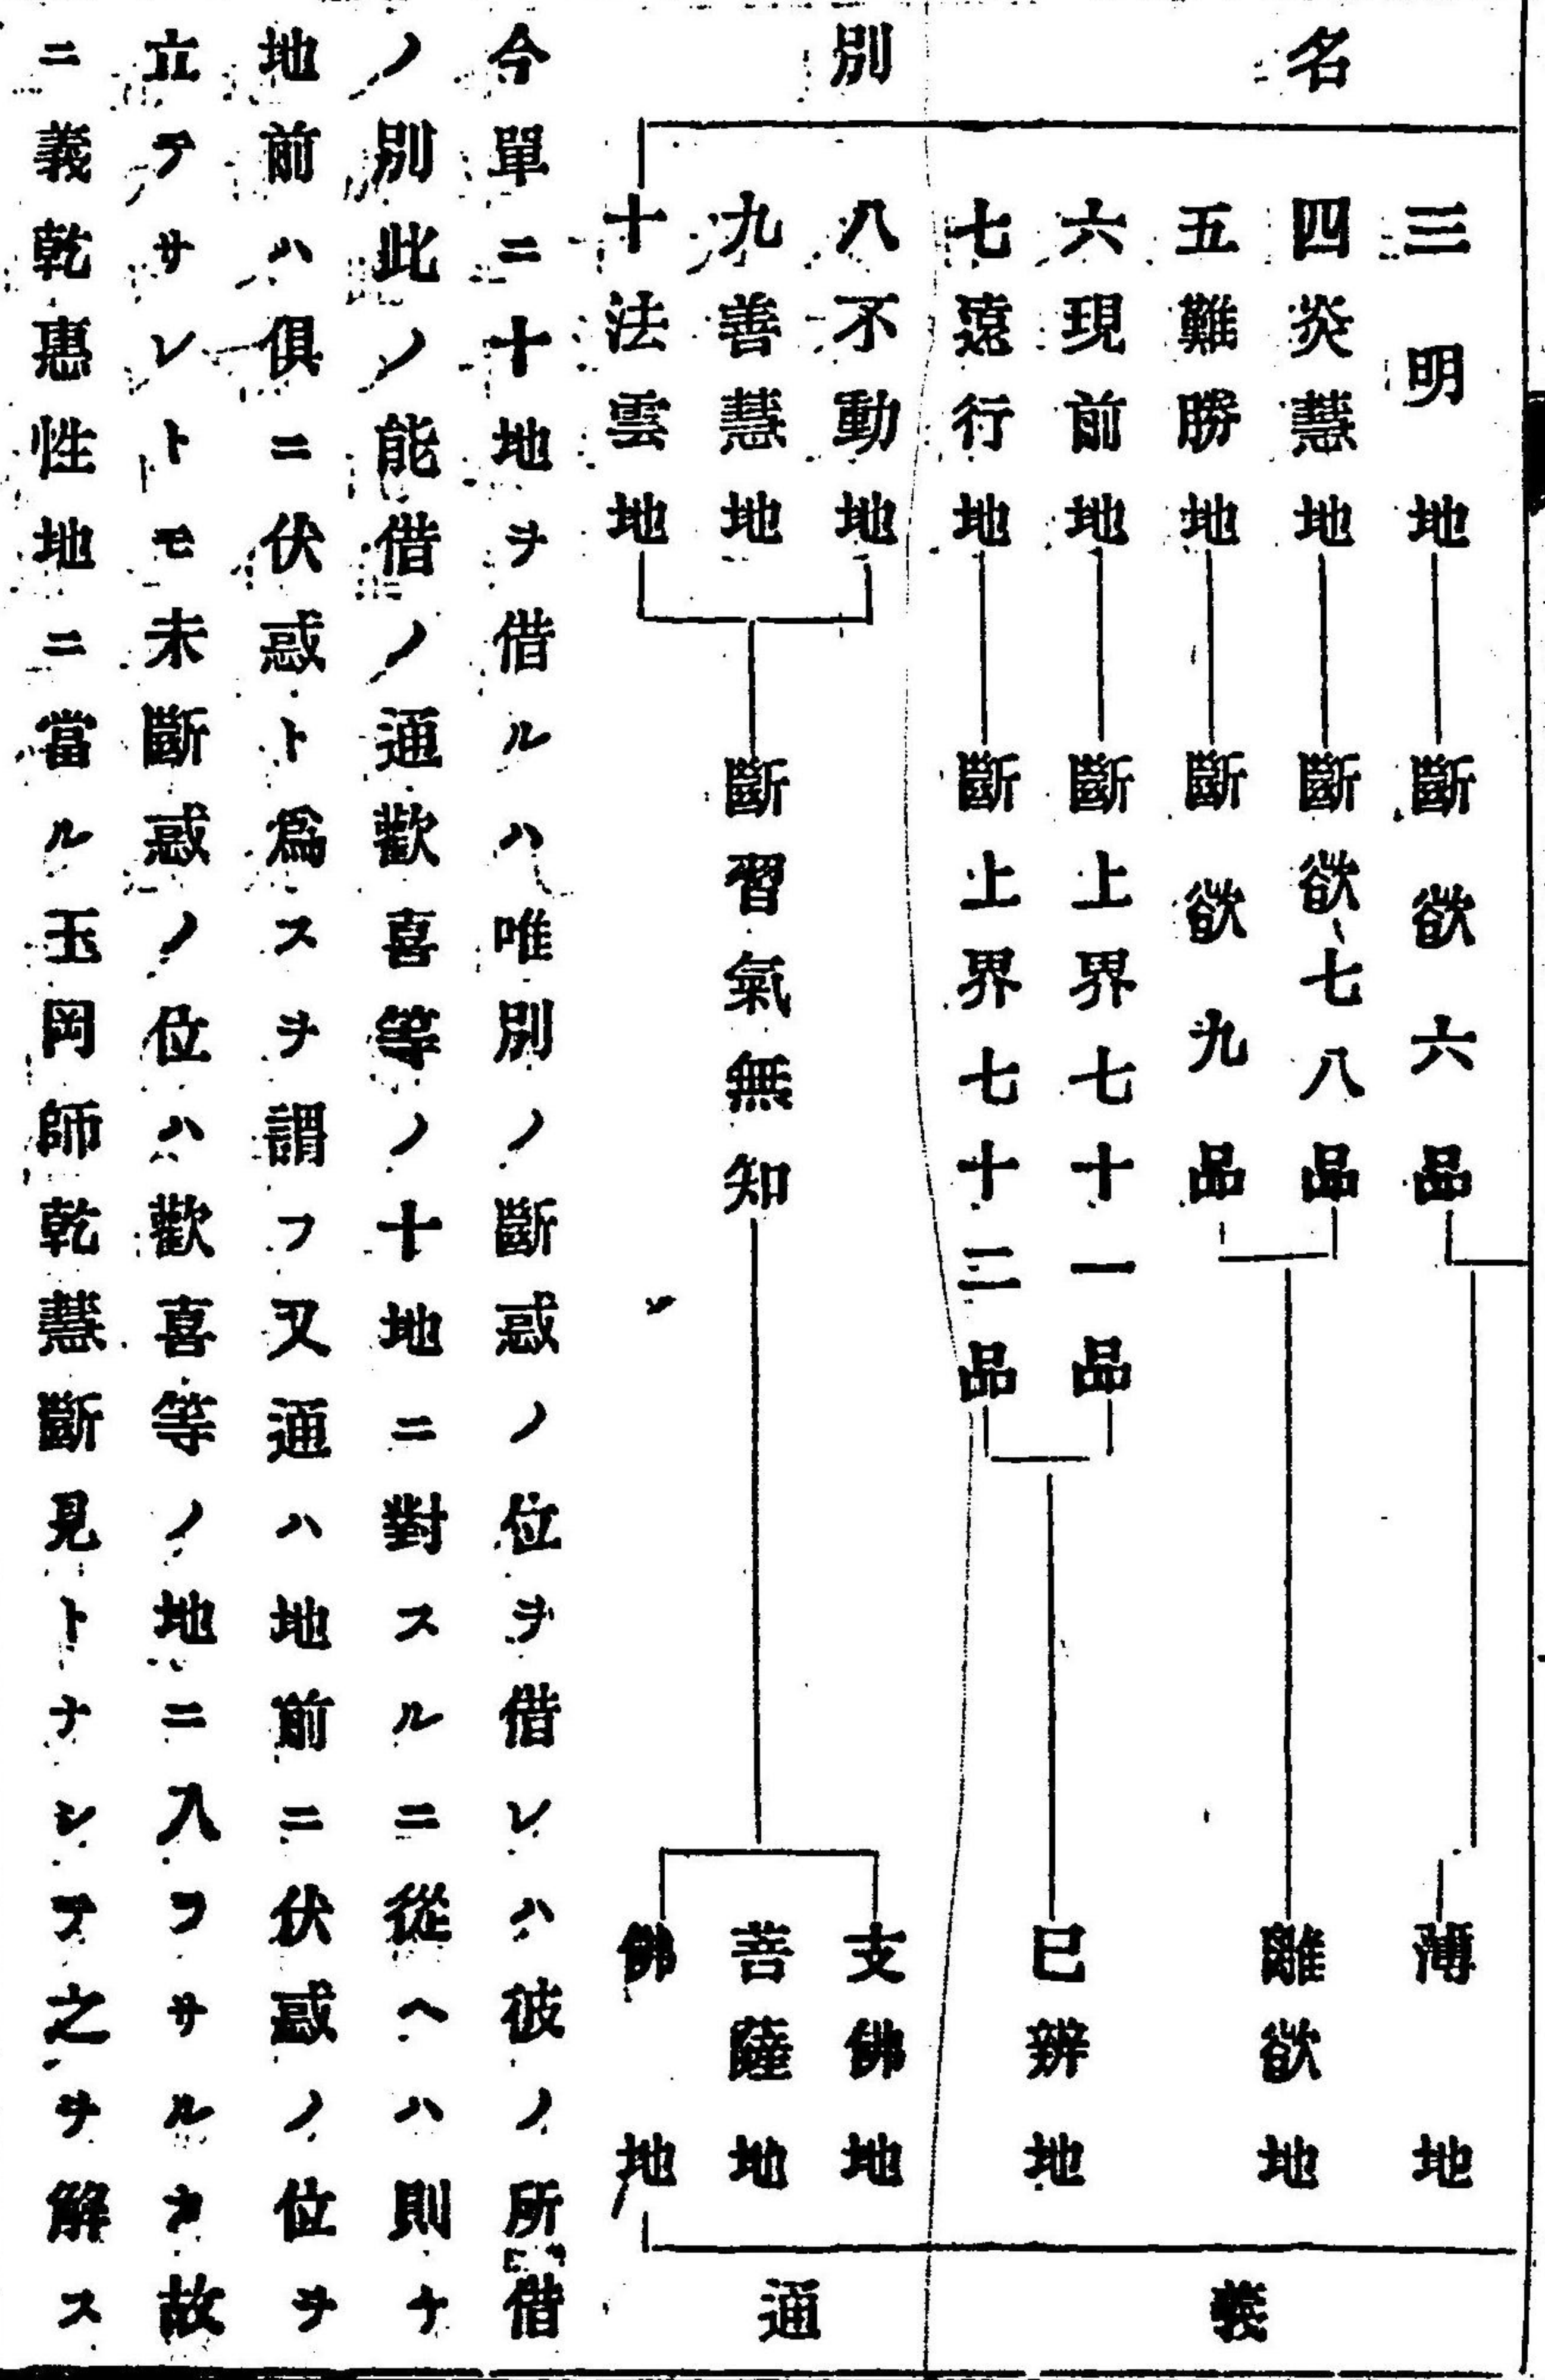 名別
三明地 斷欲六品 薄地
四炎慧地 斷欲七八品
五難勝地 斷欲九品 離欲地
六現前地 斷上界七十一品
七遠行地 斷上界七十二品 已辨地
八不動地 支佛地
九善慧地 斷習氣無知 菩薩地
十法雲地 佛地
義通
今單ニ十地ヲ借ルハ唯別ノ斷惑ノ位ヲ借レハ彼ノ所借
ノ別此ノ能借ノ通歡喜等ノ十地ニ對スルニ從ヘハ則ナ
地前ハ俱ニ伏惑ト爲スヲ謂フ又通ハ地前ニ伏惑ノ位ヲ
立テサレトモ未斷惑ノ位ハ歡喜等ノ地ニ入ラサルカ故
ニ義乾惠性地ニ當ル玉岡師乾慧斷見トナシテ之ヲ解ス